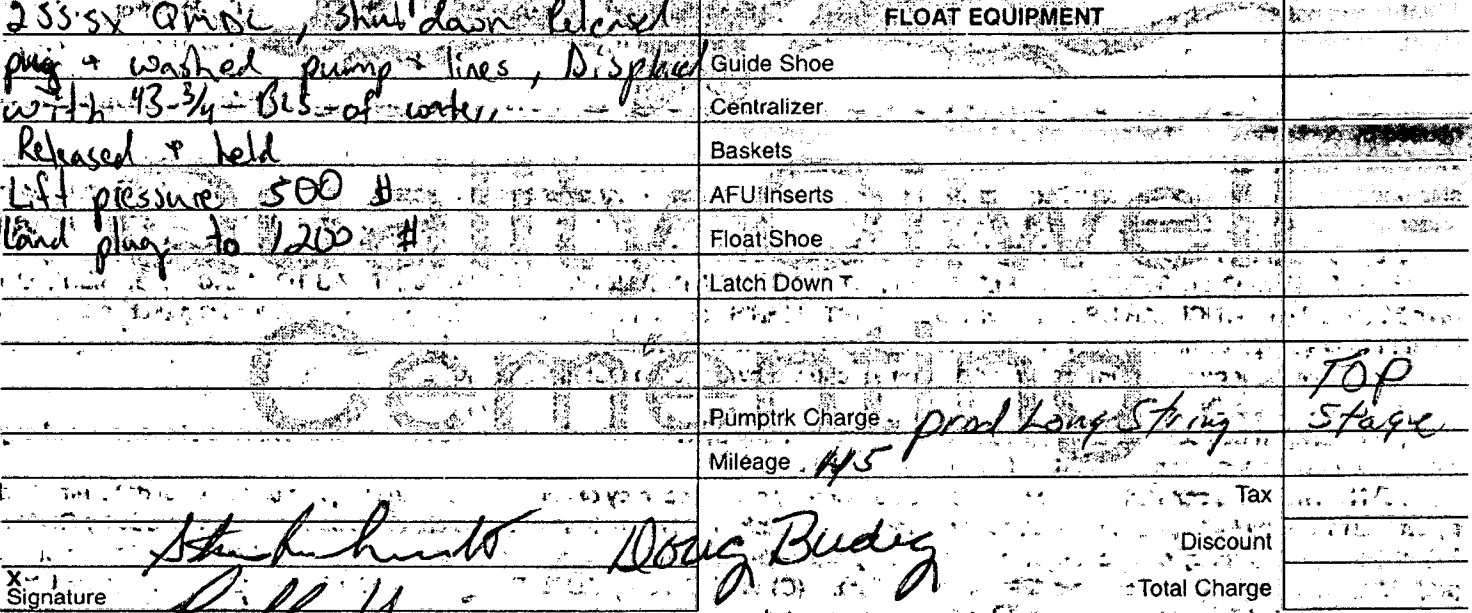 255 sx QMDC, shut down Released
plug + washed pump + lines, Displaced
with 43-3/4 BLS of water,
Released + held
Lift pressure 500 #
Land plug to 1200 #
FLOAT EQUIPMENT
Guide Shoe
Centralizer
Baskets
AFU Inserts
Float Shoe
Latch Down
Cementing
TOP
Pumptrk Charge prod Long String Stage
Mileage 45
Tax
Doug Budig
Discount
X
Signature
Total Charge